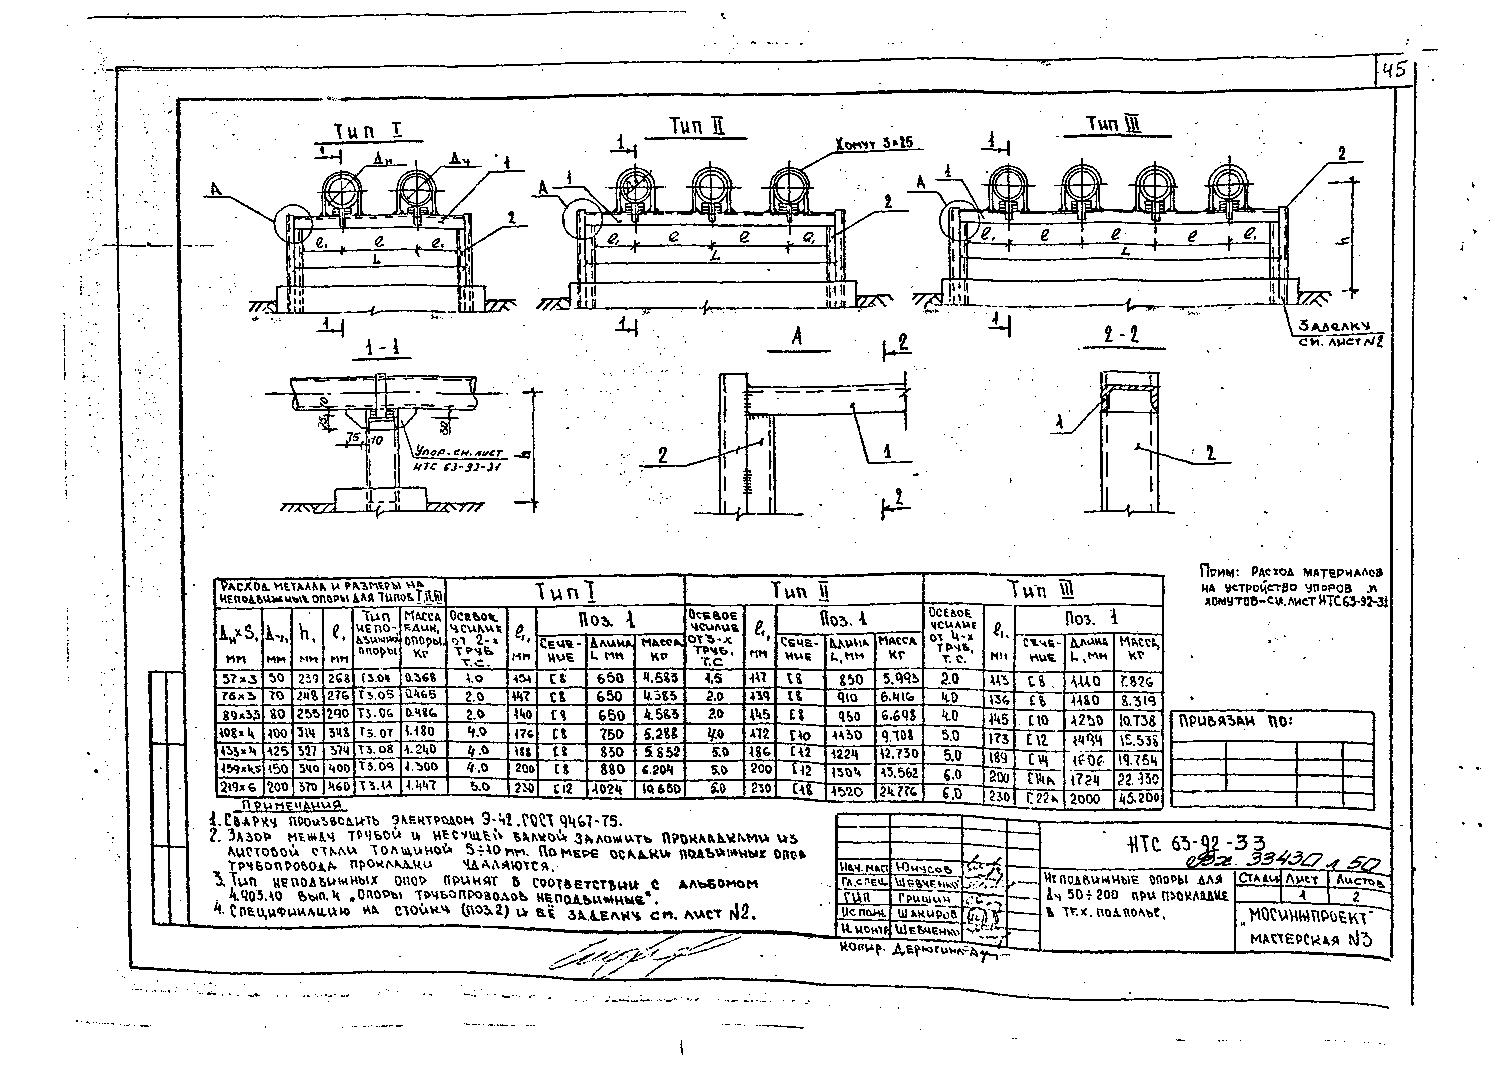 45
Тип I
Тип II
Тип III
Хомут 3×25
Заделку
см. лист N2
1-1
А
2-2
Упор-см. лист
НТС 63-92-31
Прим: Расход материалов
на устройство упоров и
хомутов-см. лист НТС 63-92-31
Расход металла и размеры на
неподвижные опоры для типов I, II, III
Тип I
Тип II
Тип III
Дн×S, мм
Ду, мм
h, мм
ℓ, мм
Тип неподвижной опоры
Масса един. опоры, кг
Осевое усилие от 2-х труб т.с.
ℓ₁, мм
Поз. 1
Сечение
Длина L мм
Масса кг
Осевое усилие от 3-х труб, т.с
ℓ₁, мм
Поз. 1
Сечение
Длина L, мм
Масса кг
Осевое усилие от 4-х труб, т.с.
ℓ₁ мм
Поз. 1
Сечение
Длина L, мм
Масса, кг
57×3 50 239 268 Т3.04 0.368 1.0 154 [8 650 4.583 1.5 117 [8 850 5.993 2.0 113 [8 1110 7.826
76×3 70 248 276 Т3.05 0.465 2.0 147 [8 650 4.583 2.0 139 [8 910 6.416 4.0 136 [8 1180 8.319
89×3,5 80 255 290 Т3.06 0.486 2.0 140 [8 650 4.583 2.0 145 [8 950 6.698 4.0 145 [10 1250 10.738
108×4 100 314 348 Т3.07 1.180 4.0 176 [8 750 5.288 4.0 172 [10 1130 9.708 5.0 173 [12 1494 15.538
133×4 125 327 374 Т3.08 1.240 4.0 188 [8 830 5.852 5.0 186 [12 1224 12.730 5.0 189 [14 1606 19.754
159×4,5 150 340 400 Т3.09 1.300 4.0 200 [8 880 6.204 5.0 200 [12 1304 13.562 6.0 200 [14а 1724 22.930
219×6 200 370 460 Т3.11 1.447 5.0 230 [12 1024 10.650 6.0 230 [18 1520 24.776 6.0 230 [22а 2000 45.200
Привязан по:
Примечания
1. Сварку производить электродом Э-42. ГОСТ 9467-75.
2. Зазор между трубой и несущей балкой заложить прокладками из
листовой стали толщиной 5÷10 мм. По мере осадки подвижных опор
трубопровода прокладки удаляются.
3. Тип неподвижных опор принят в соответствии с альбомом
4.903.10 вып. 4 „Опоры трубопроводов неподвижные".
4. Спецификацию на стойку (поз.2) и её заделку см. лист N2.
Нач. маст Юнусов
Гл. спец. Шевченко
ГИП Гришин
Исполн. Шакиров
Н. контр Шевченко
Копир. Дерюгина
НТС 63-92-33
Вх. 33430 л 50
Неподвижные опоры для
Ду 50÷200 при прокладке
в тех. подполье.
Стадия Лист Листов
1 2
„Мосинжпроект"
Мастерская N3